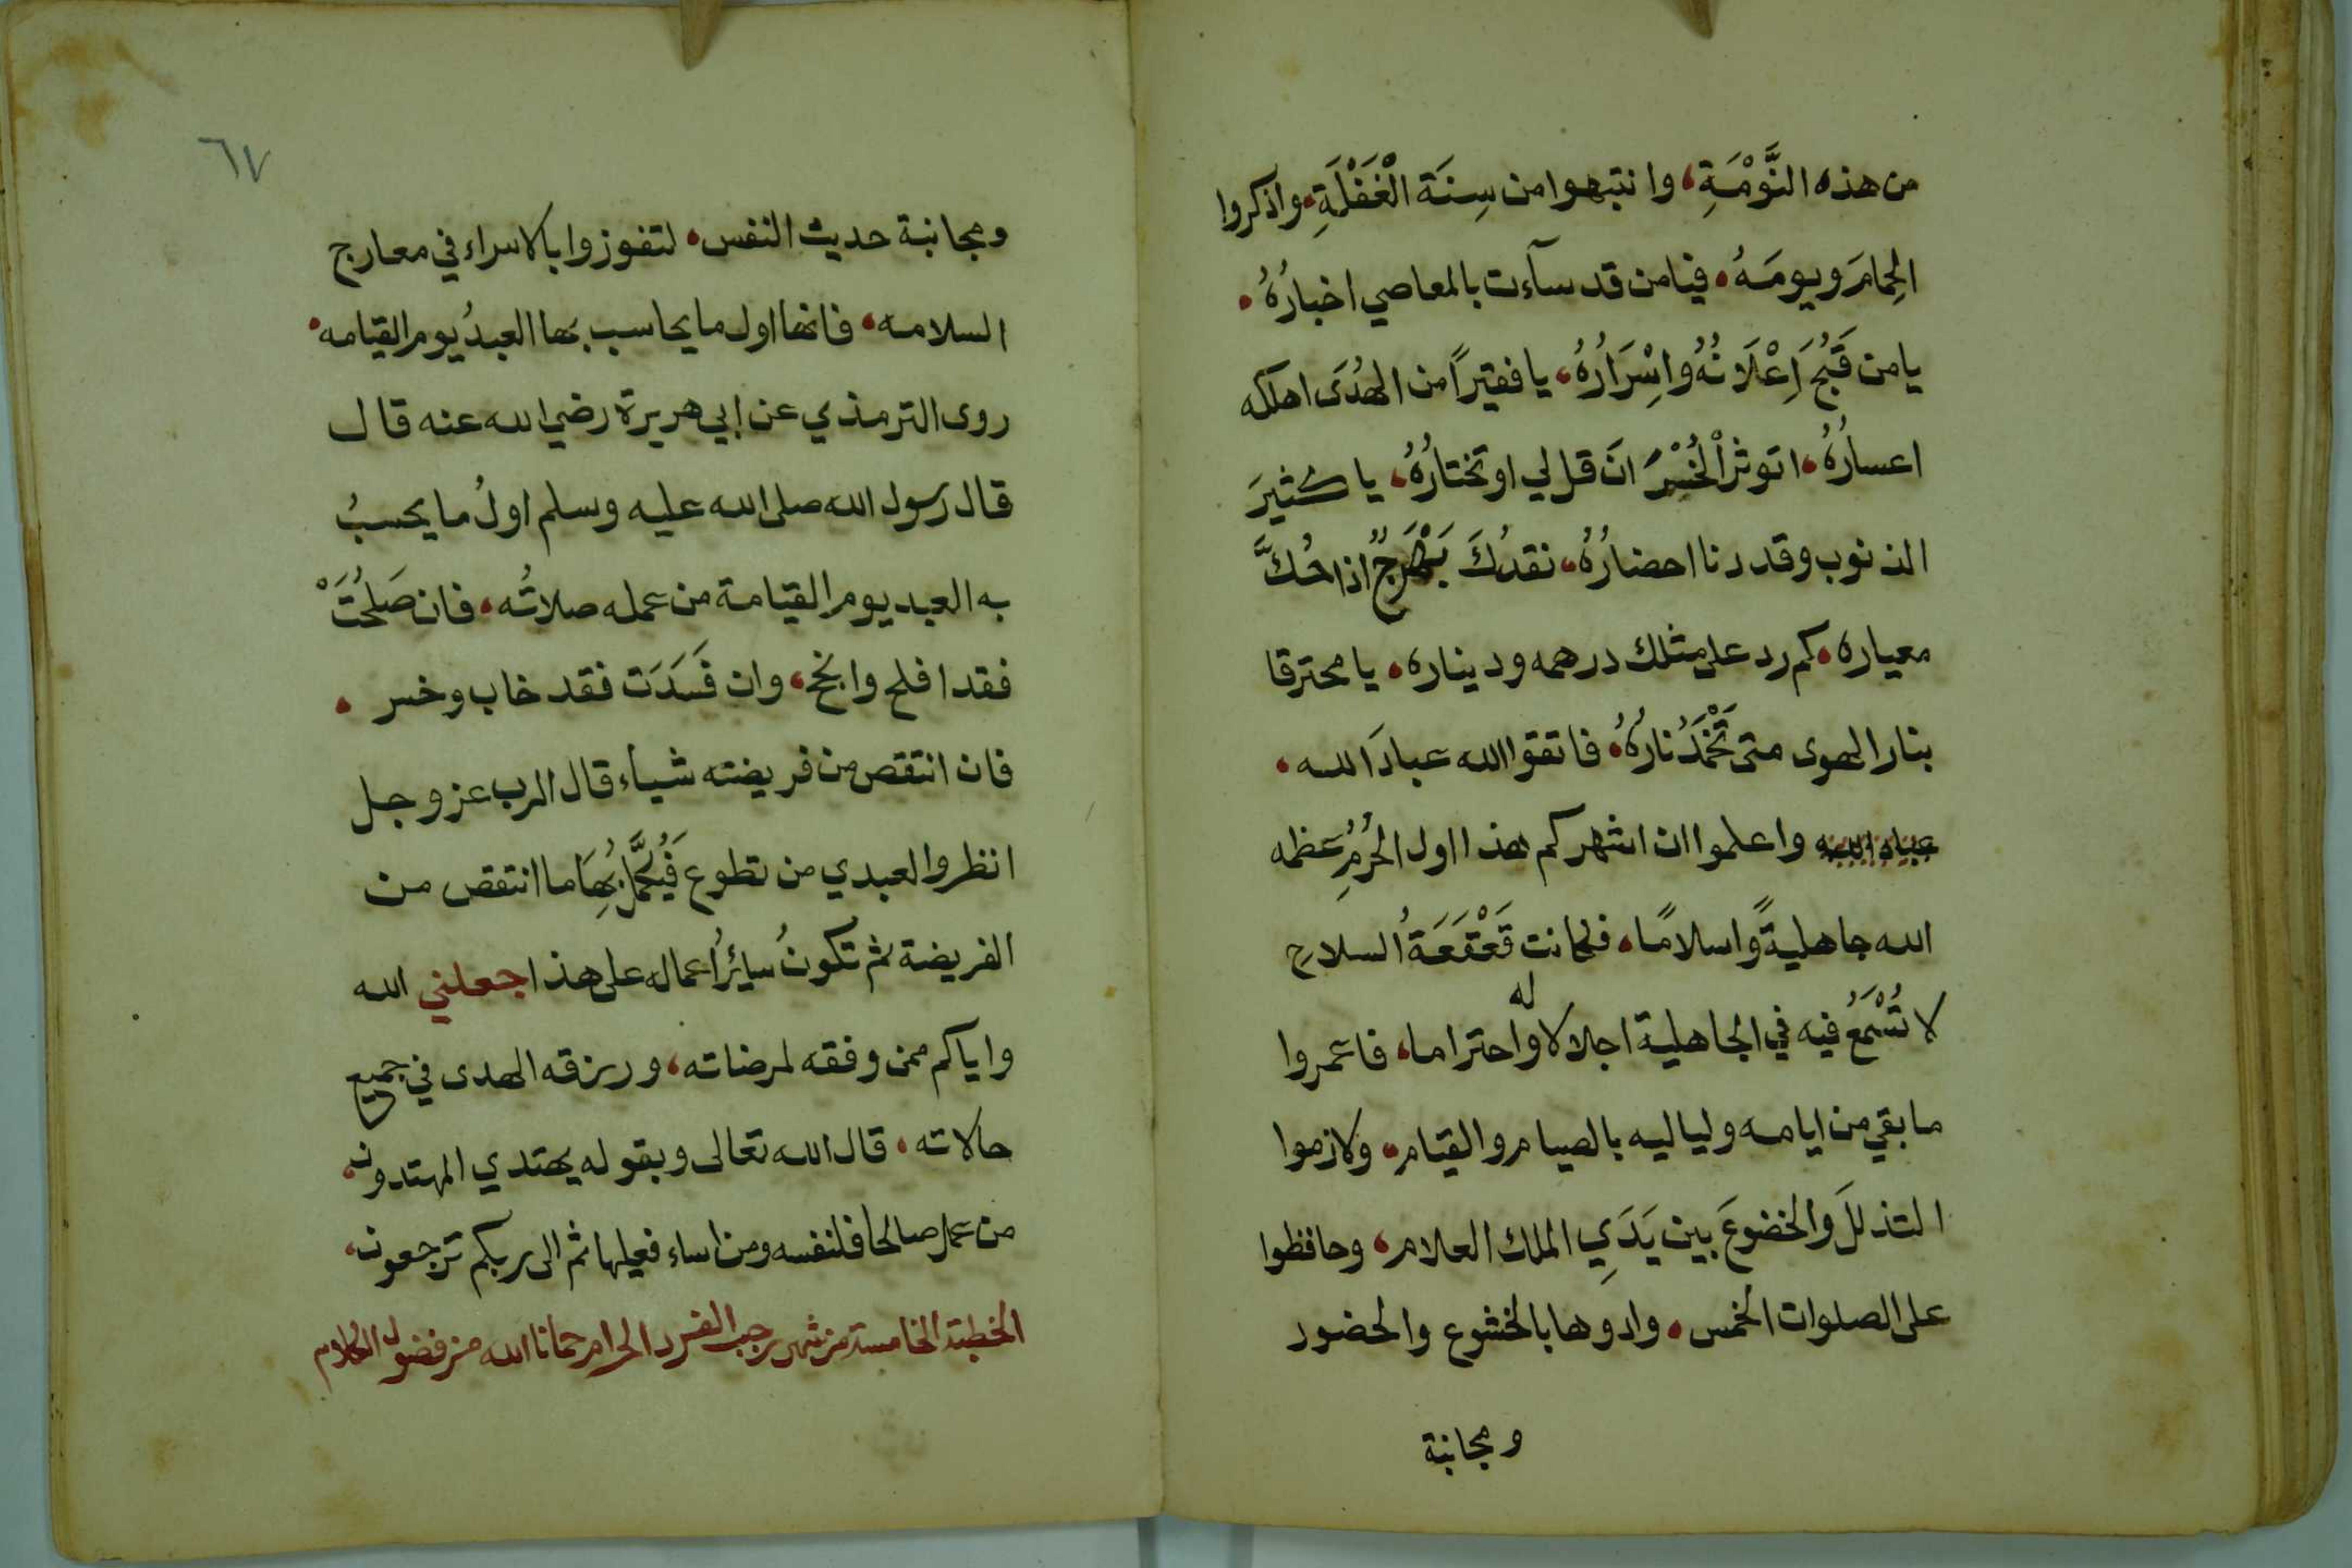 من هذه النَّوْمَةِ، وانتبهوا من سِنَة الْغَفْلَةِ، واذكروا
الحِمامَ ويومَهُ، فيامن قد سآءت بالمعاصي اخبارُهُ،
يا من قَبُحَ اِعْلَانُهُ واِسْرَارُهُ، يا فقيراً من الهُدَى اهلكه
اعسارُهُ، اتوثر الْخُسْرَ انَ قل لي اوتختارُهُ، يا كثيرَ
الذنوب وقد دنا احضارُهُ، نقدُكَ بَهْرَجٌ اذا حُكَّ
معياره، كم رد على مثلك درهمه ودينارہ، يا محترقا
بنار الهوى متى تَخْمَدُ نارُهُ، فاتقوا الله عبادَ الله،
عباد الله واعلموا ان اشهركم هذا اول الحُرُمِ عظمه
الله جاهليةً واسلامًا، فكانت قَعْقَعَةُ السلاحِ
لا تُسْمَعُ فيه في الجاهلية اجلالا له واحتراما، فاعمروا
ما بقي من ايامه ولياليه بالصيام والقيام، ولازموا
التذللَ والخضوعَ بين يَدَيِ الملك العلام، وحافظوا
على الصلوات الخمس، وادوها بالخشوع والحضور
ومجانبة
٦٧
ومجانبة حديث النفس، لتفوزوا بالاسراء في معارج
السلامه، فانها اول ما يحاسب بها العبدُ يوم القيامه،
روى الترمذي عن ابي هريرة رضي الله عنه قال
قال رسول الله صلى الله عليه وسلم اولُ ما يحسبُ
به العبد يوم القيامة من عمله صلاتُه، فان صَلُحَتْ
فقد افلح وانجح، وان فَسَدَت فقد خاب وخسر،
فان انتقص من فريضته شياء قال الرب عز وجل
انظروا لعبدي من تطوع فَيُكَمَّل بِهَا ما انتقص من
الفريضة ثم تكونُ سايرُ اعماله على هذا جعلني الله
واياكم ممن وفقه لمرضاته، ورزقه الهدى في جميع
حالاته، قال الله تعالى وبقوله يهتدي المهتدون،
من عمل صالحا فلنفسه ومن اساء فعليها ثم الى ربكم ترجعون،
الخطبة الخامسة من شهر رجب الفرد الحرام حمانا الله من فضول الكلام